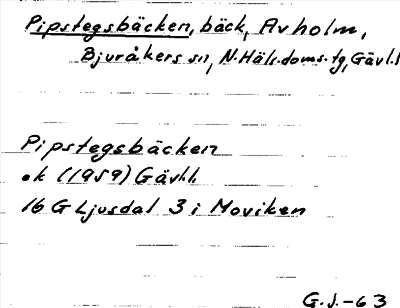 Pipstegsbäcken, bäck, Avholm,
Bjuråkers sn, N.Häls.doms.tg, Gävl.l
Pipstegsbäcken
ek (1959) Gävl.l.
16 G Ljusdal 3 i Moviken
G.J.-63